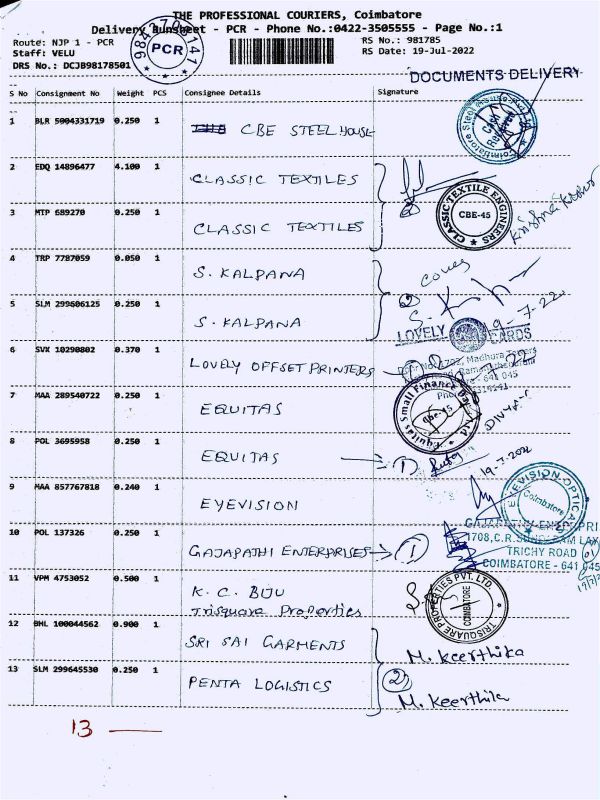 THE PROFESSIONAL COURIERS, Coimbatore
Delivery Runsheet - PCR - Phone No.:0422-3505555 - Page No.:1
Route: NJP 1 - PCR
Staff: VELU
DRS No.: DCJB98178501
RS No.: 981785
RS Date: 19-Jul-2022
PCR
DOCUMENTS DELIVERY
S No Consignment No Weight PCS Consignee Details Signature
1 BLR 5904331719 0.250 1 CBE STEEL HOUSE
Coimbatore Steel
Cash Received
2 EDQ 14896477 4.100 1 CLASSIC TEXTILES
3 MTP 689270 0.250 1 CLASSIC TEXTILES
2
CLASSIC TEXTILE ENGINEERS
CBE-45
4 TRP 7787059 0.050 1 S. KALPANA
5 SLM 299606125 0.250 1 S. KALPANA
2
LOVELY CARDS
6 SVX 10290802 0.370 1 LOVELY OFFSET PRINTERS
7 MAA 289540722 0.250 1 EQUITAS
Equitas Small Finance
8 POL 3695958 0.250 1 EQUITAS 1
19-7-2022
9 MAA 857767818 0.240 1 EYEVISION
EYEVISION OPTICALS
Coimbatore
10 POL 137326 0.250 1 GAJAPATHI ENTERPRISES 1
TRICHY ROAD
COIMBATORE - 641 045
11 VPM 4753052 0.500 1 K. C. BIJU
Trisquare Properties
TRISQUARE PROPERTIES PVT. LTD
COIMBATORE
12 BHL 100044562 0.900 1 SRI SAI GARMENTS
M. Keerthika
13 SLM 299645530 0.250 1 PENTA LOGISTICS
2
M. Keerthika
13